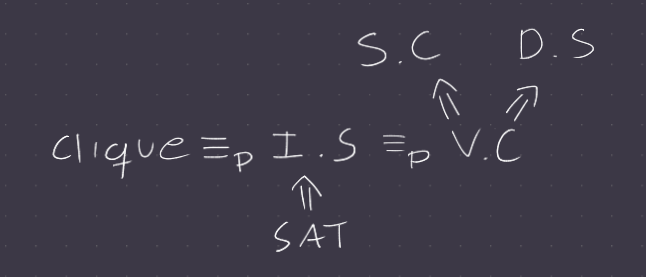 S.C D.S
clique ≡p I.S ≡p V.C
SAT